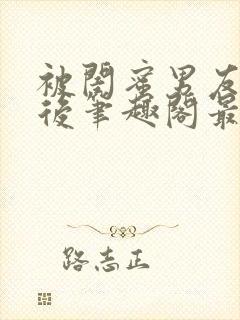 被閨蜜男友
後筆趣閣最
路志正